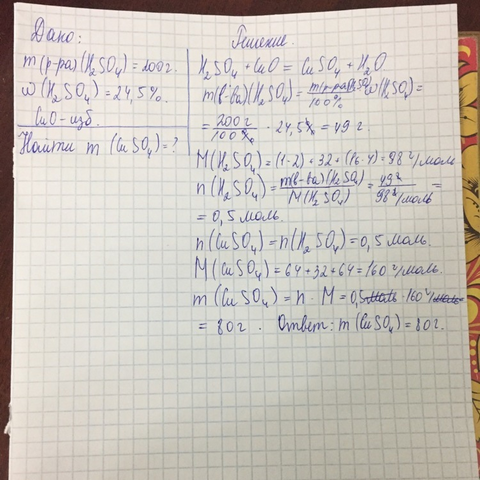 Дано:
m(р-ра)(H₂SO₄)=200г.
ω(H₂SO₄)=24,5%.
CuO-изб.
Найти m(CuSO₄)=?
Решение.
H₂SO₄+CuO=CuSO₄+H₂O
m(в-ва)(H₂SO₄)=m(р-ра)(H₂SO₄)/100%·ω(H₂SO₄)=
=200г/100%·24,5%=49г.
M(H₂SO₄)=(1·2)+32+(16·4)=98г/моль
n(H₂SO₄)=m(в-ва)(H₂SO₄)/M(H₂SO₄)=49г/98г/моль=
=0,5моль.
n(CuSO₄)=n(H₂SO₄)=0,5моль.
M(CuSO₄)=64+32+64=160г/моль.
m(CuSO₄)=n·M=0,5моль·160г/моль
=80г. Ответ: m(CuSO₄)=80г.